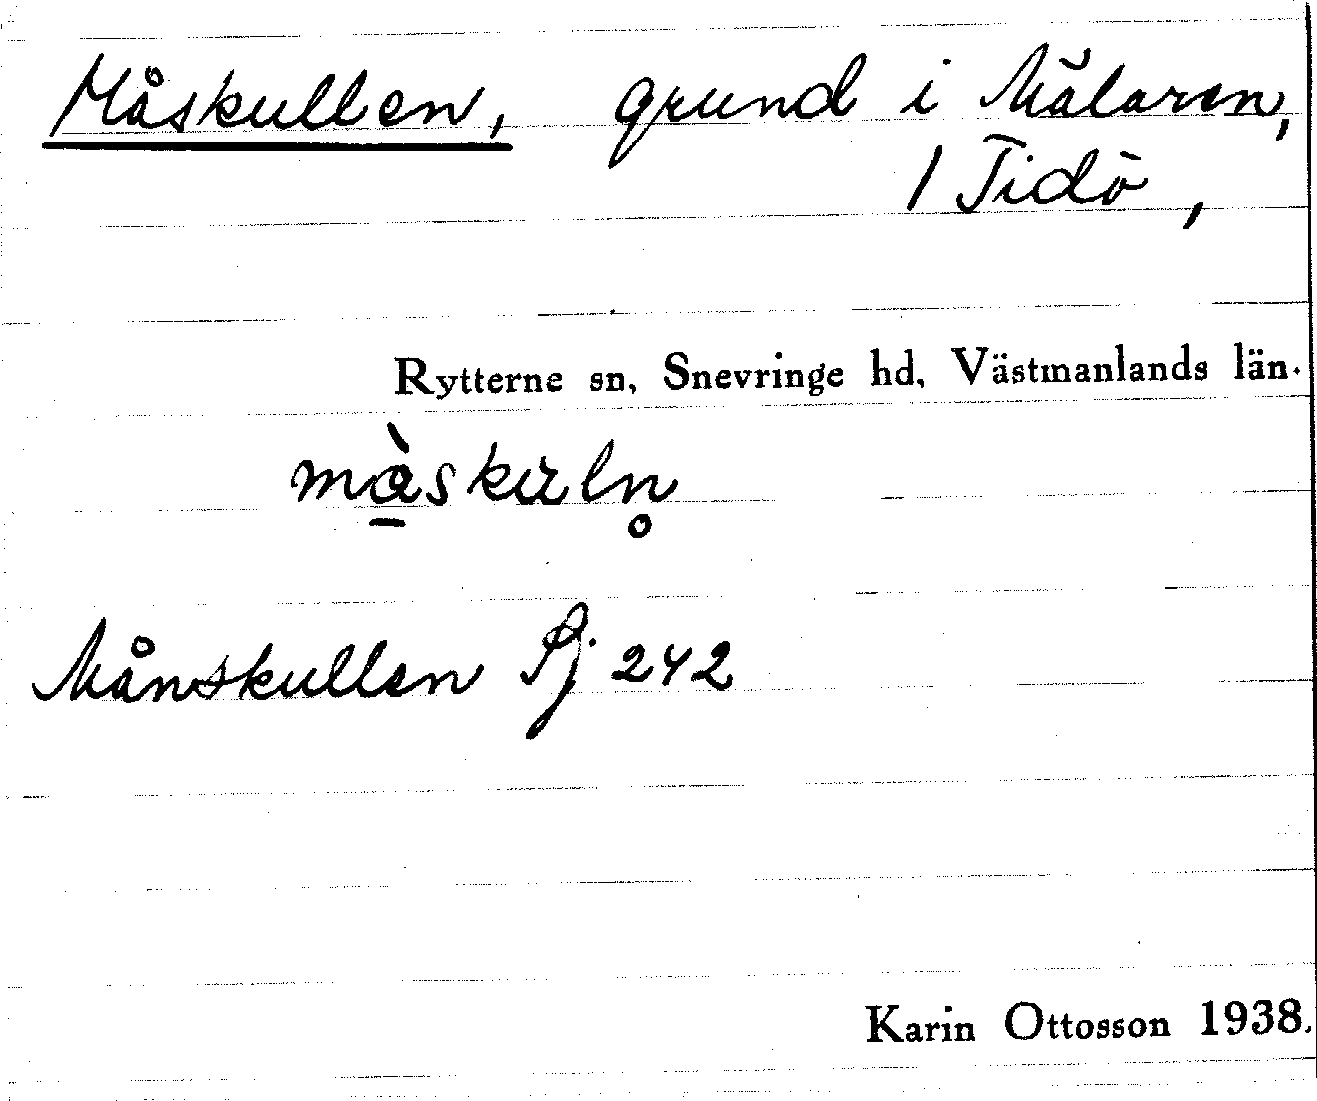 Måskullen, grund i Mälaren,
/ Tidö,
Rytterne sn, Snevringe hd, Västmanlands län.
Månskullen Sj 242
Karin Ottosson 1938.